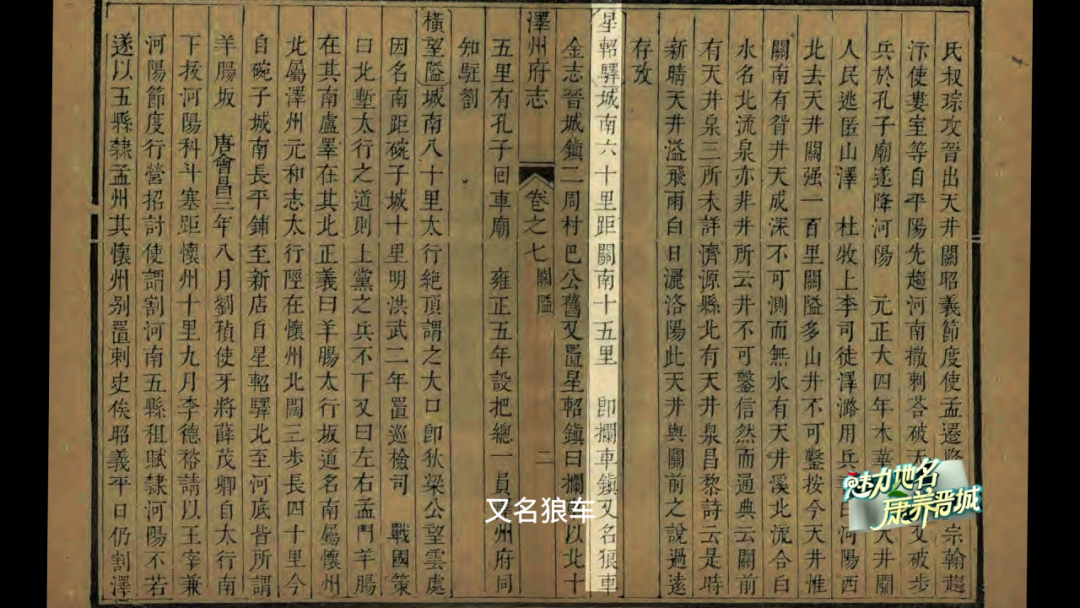 氏叔琮攻晉出天井關昭義節度使孟遷降 宗翰趨
汴使婁室等自平陽先趨河南撒剌荅破天 又破步
兵於孔子廟遂降河陽 元正大四年木華 天井關
人民逃匿山澤 杜牧上李司徒澤潞用兵 曰河陽西
北去天井關强一百里關隘多山井不可鑿按今天井惟
關南有眢井天成深不可測而無水有天井溪北流合白
水名北流泉亦非井所云井不可鑿信然而通典云關前
有天井泉三所未詳濟源縣北有天井泉昌黎詩云是時
新晴天井溢飛雨白日灑洛陽此天井與關前之說過遠
存攷
星軺驛城南六十里距關南十五里 卽攔車鎮又名狼車
金志晉城鎮二周村巴公舊又置星軺鎮曰攔 以北十
澤州府志 卷之七 關隘 二
五里有孔子回車廟 雍正五年設把總一員 州府同
知駐劄
橫望隘城南八十里太行絶頂謂之大口卽狄梁公望雲處
因名南距碗子城十里明洪武二年置巡檢司 戰國策
曰北塹太行之道則上黨之兵不下又曰左右孟門羊腸
在其南盧睪在其北正義曰羊腸太行坂道名南屬懷州
北屬澤州元和志太行陘在懷州北闊三步長四十里今
自碗子城南長平鋪至新店自星軺驛北至河底皆所謂
羊腸坂 唐會昌三年八月劉稹使牙將薛茂卿自太行南
下拔河陽科斗塞距懷州十里九月李德裕請以王宰兼
河陽節度行營招討使謂割河南五縣租賦隸河陽不若
遂以五縣隸孟州其懷州别置刺史俟昭義平日仍割澤
又名狼车
@魅力地名
康养晋城